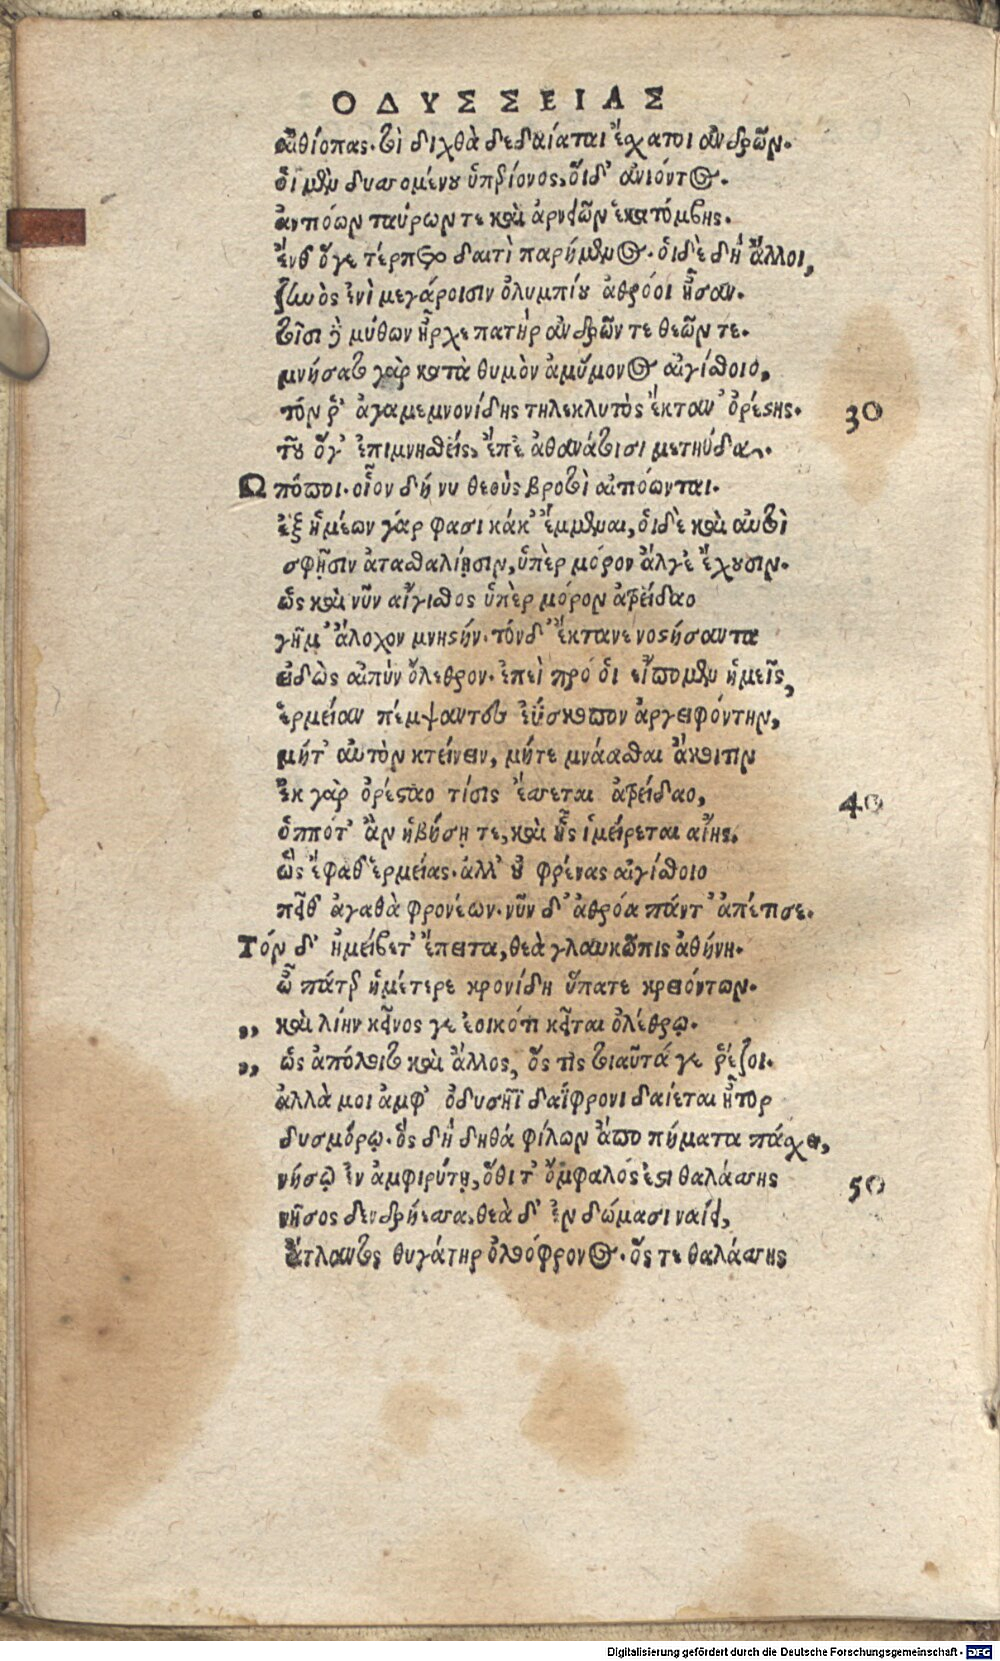 ΟΔΥΣΣΕΙΑΣ
αἰθίοπας. τοὶ διχθὰ δεδαίαται ἔχατοι ἀνδρῶν.
ὁι μὲν δυσομένου ὑπερίονος, ὅιδ' ἀνιόντος.
ἀντιόων ταύρων τε καὶ ἀρνειῶν ἑκατόμβης.
ἔνθ' ὅγε τέρπετο δαιτὶ παρήμενος. ὁιδὲ δὴ ἄλλοι,
ζηνὸς ἐνὶ μεγάροισιν ὀλυμπίου ἀθρόοι ἦσαν.
τοῖσι δὲ μύθων ἦρχε πατὴρ ἀνδρῶν τε θεῶν τε.
μνήσατο γὰρ κατὰ θυμὸν ἀμύμονος αἰγίσθοιο,
τόν ῥ' ἀγαμεμνονίδης τηλεκλυτὸς ἔκταν' ὀρέστης. 30
τοῦ ὅγ' ἐπιμνησθεὶς, ἔπε' ἀθανάτοισι μετηύδα.
Ω πόποι. οἷον δή νυ θεοὺς βροτοὶ αἰτιόωνται.
ἐξ ἡμέων γάρ φασι κάκ' ἔμμεναι, ὁιδὲ καὶ αὐτοὶ
σφῇσιν ἀτασθαλίῃσιν, ὑπὲρ μόρον ἄλγε' ἔχουσιν.
ὡς καὶ νῦν αἴγισθος ὑπὲρ μόρον ἀτρείδαο
γῆμ' ἄλοχον μνηστήν. τόνδ' ἔκτανε νοστήσαντα
εἰδὼς αἰπὺν ὄλεθρον. ἐπεὶ πρό ὁι εἴπομεν ἡμεῖς,
ἑρμείαν πέμψαντες ἐΰσκοπον ἀργειφόντην,
μήτ' αὐτὸν κτείνειν, μήτε μνάασθαι ἄκοιτιν
ἐκ γὰρ ὀρέσταο τίσις ἔσσεται ἀτρείδαο, 40
ὁππότ' ἂν ἡβήσῃ τε, καὶ ἧς ἱμείρεται αἴης.
ὣς ἔφαθ' ἑρμείας. ἀλλ' οὐ φρένας αἰγίσθοιο
πεῖθ' ἀγαθὰ φρονέων. νῦν δ' ἀθρόα πάντ' ἀπέτισε.
Τόν δ' ἠμείβετ' ἔπειτα, θεὰ γλαυκῶπις ἀθήνη.
ὦ πάτερ ἡμέτερε κρονίδη ὕπατε κρειόντων.
,, καὶ λίην κεῖνος γε ἐοικότι κεῖται ὀλέθρῳ.
,, ὡς ἀπόλοιτο καὶ ἄλλος, ὅς τις τοιαῦτά γε ῥέζοι.
ἀλλὰ μοι ἀμφ' ὀδυσῆϊ δαΐφρονι δαίεται ἦτορ
δυσμόρῳ. ὃς δὴ δηθά φίλων ἄπο πήματα πάσχει,
νήσῳ ἐν ἀμφιρύτῃ, ὅθι τ' ὀμφαλός ἐστι θαλάσσης 50
νῆσος δενδρήεσσα, θεὰ δ' ἐν δώμασι ναίει,
ἄτλαντος θυγάτηρ ὀλοόφρονος. ὅς τε θαλάσσης
Digitalisierung gefördert durch die Deutsche Forschungsgemeinschaft - DFG